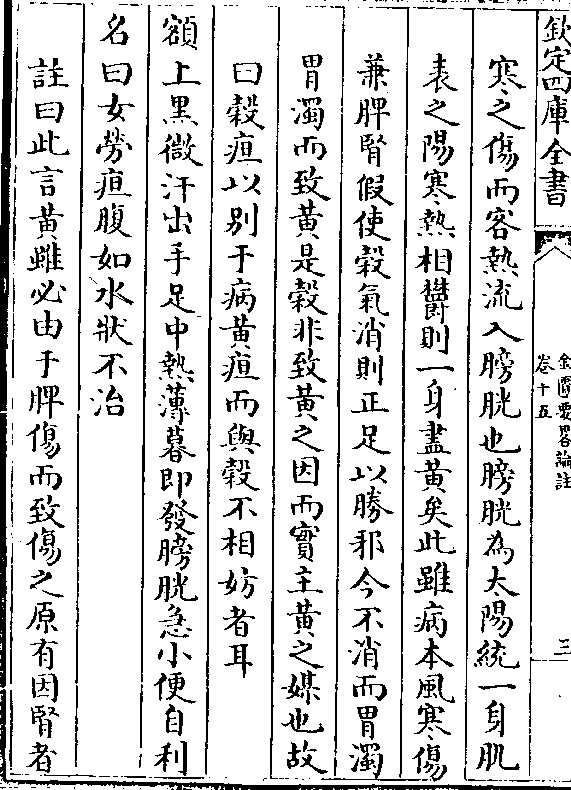 欽定四庫全書
金匱要畧論註
卷十五
三
寒之傷而客熱流入膀胱也膀胱為太陽統一身肌
表之陽寒熱相鬱則一身盡黃矣此雖病本風寒傷
兼脾腎假使穀氣消則正足以勝邪今不消而胃濁
胃濁而致黃是穀非致黃之因而實主黃之媒也故
曰穀疸以別于病黃疸而與穀不相妨者耳
額上黑微汗出手足中熱薄暮即發膀胱急小便自利
名曰女勞疸腹如水狀不治
註曰此言黃雖必由于脾傷而致傷之原有因腎者